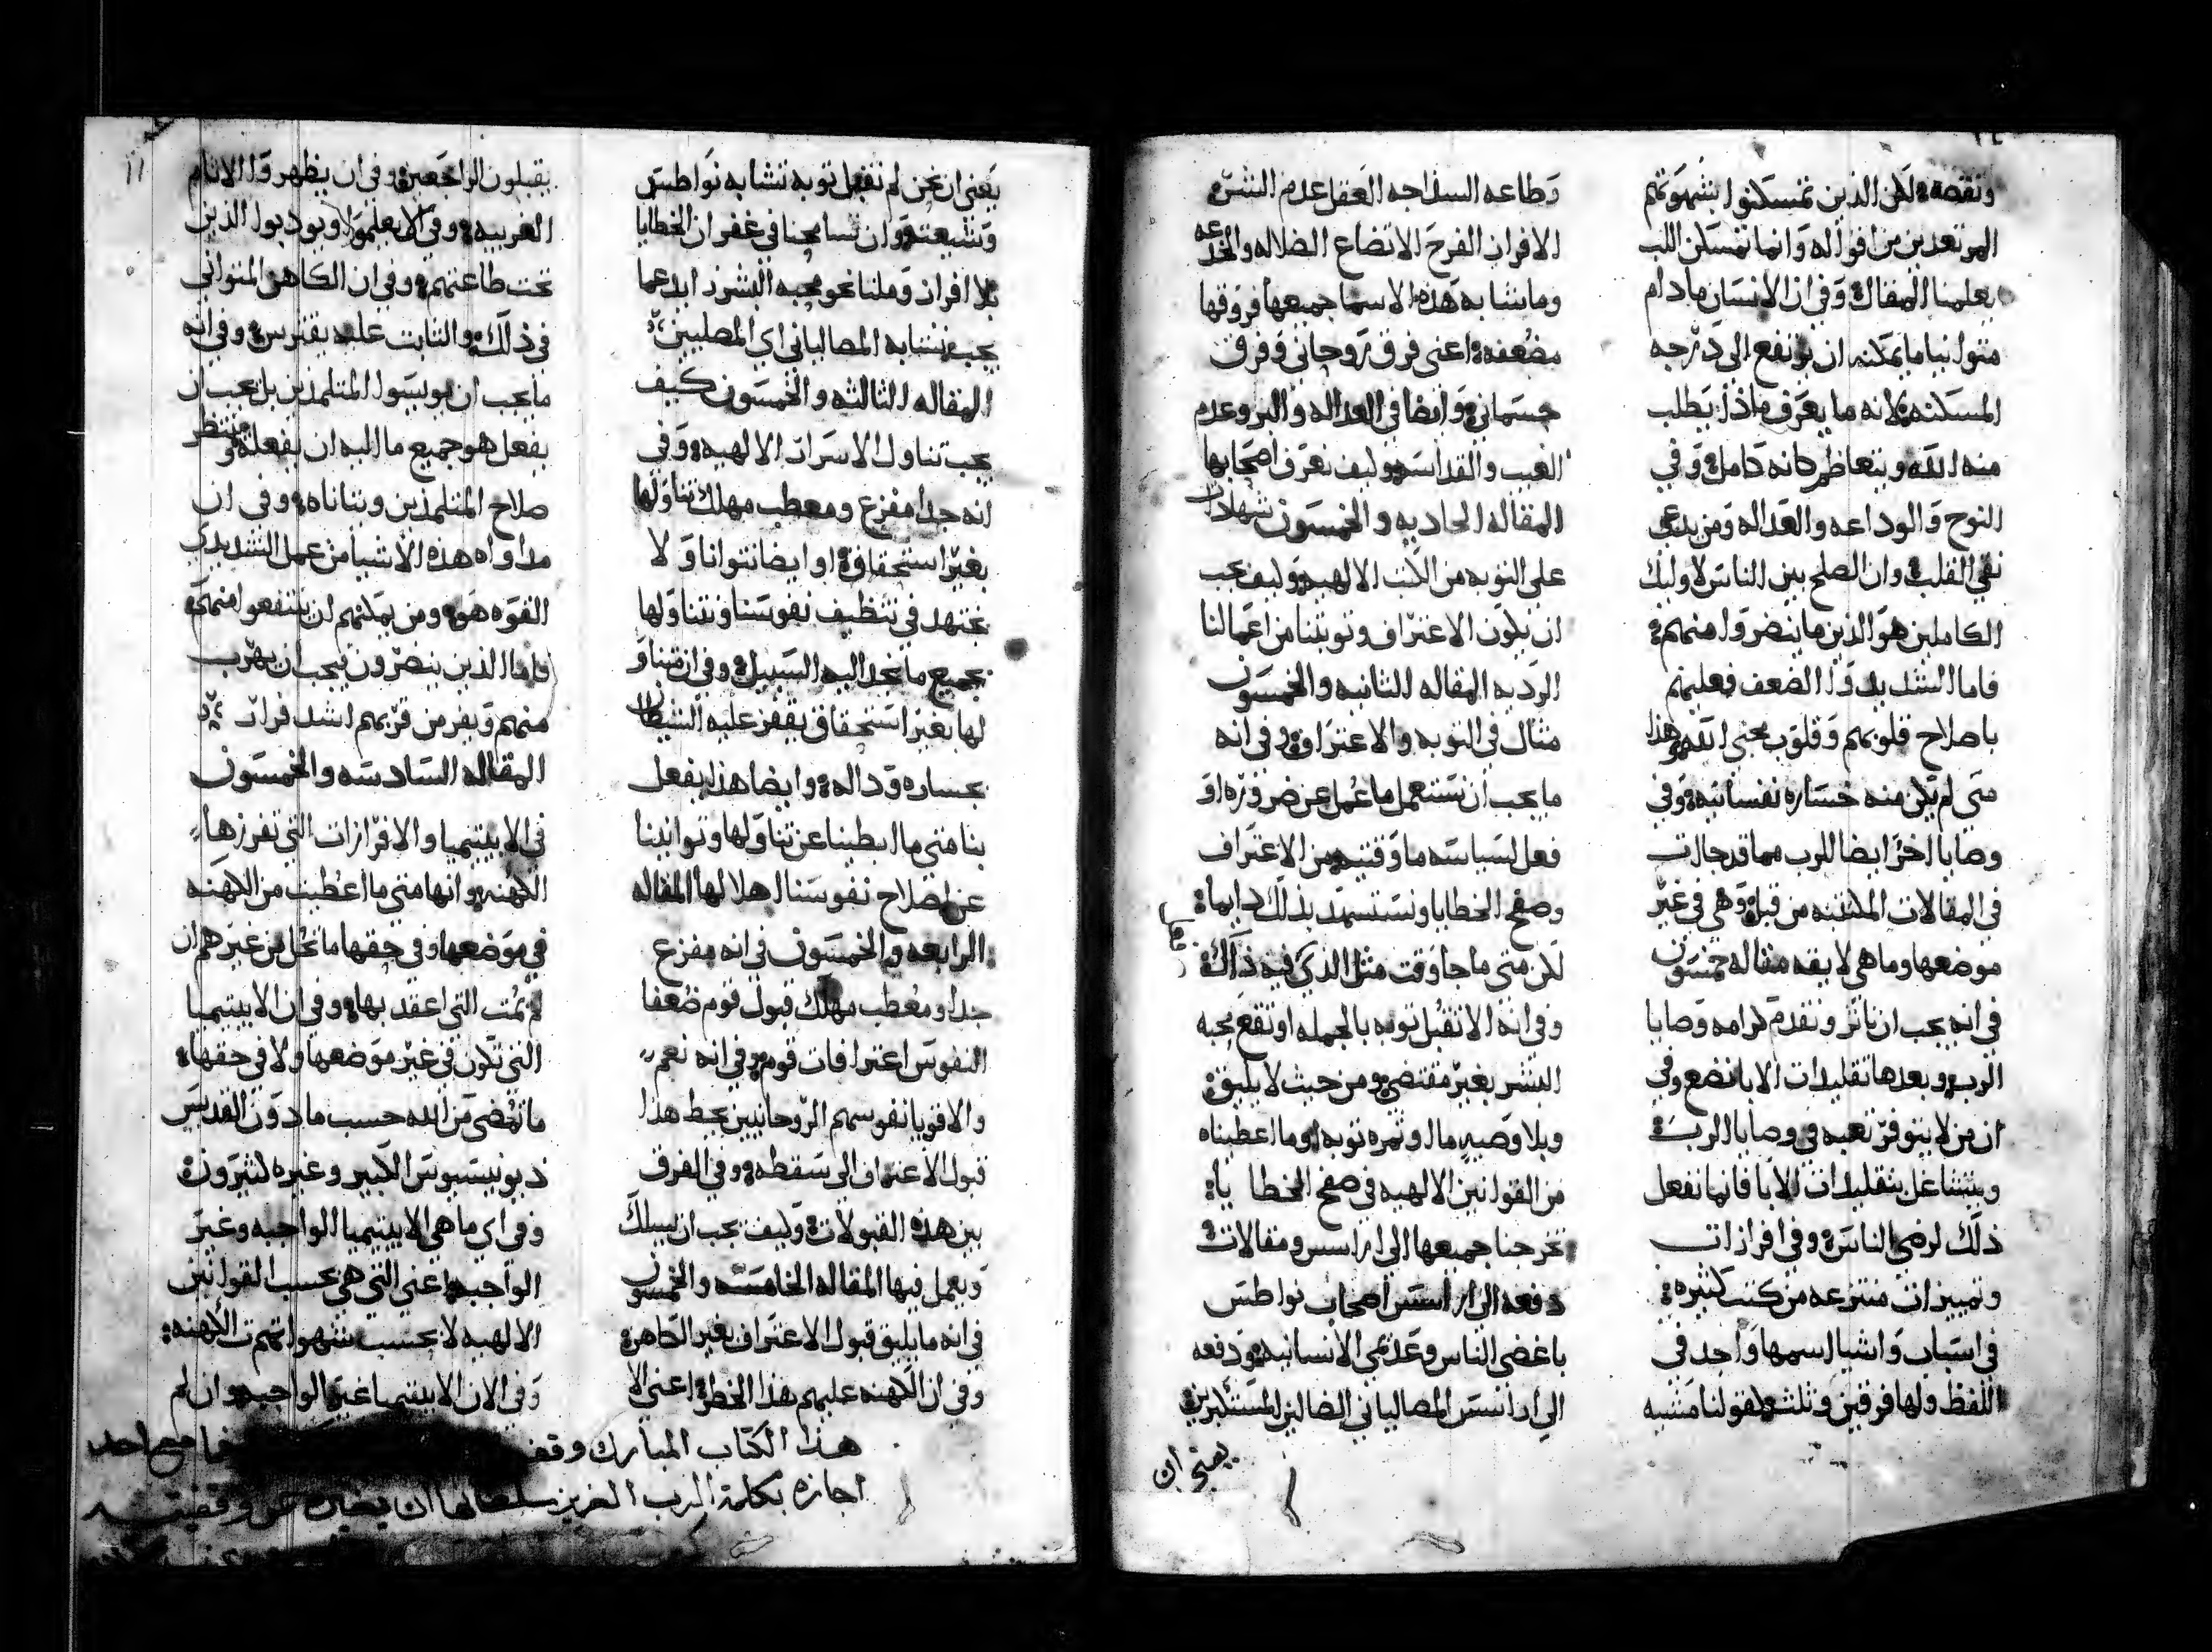 ونقصه لكن الذين تمسكنوا بشهوتهم
المرتعدين من اقواله وانما تمسكن اللب
يعلمنا المقال وفي ان الانسان مادام
متوانيا ما يمكنه ان يرتفع الى درجه
المسكنه لانه ما يعرف ماذا يطلب
منه الله ويتعاظم كانه كامل وفي
النوح والوداعه والعداله ومن يدعى
نقي القلب وان الصلح بين الناس لاوليك
الكاملين هو الذين ما ينضروا منهم
فاما الشديدوا الضعف فعليهم
باصلاح قلوبهم وقلوب محبي الله وهذا
متى لم يكن منه خساره نفسانيه وفي
وصايا اخر ايضا للرب مما قد جات
في المقالات المكتتبه من قبل وهي في غير
موضعها وما هي لايقه مقاله خمسون
في انه يجب ان ناثر ونقدم كرامه وصايا
الرب وبعدها تقليدات الابا نضع وفي
ان من لا يتوفر تعبه في وصايا الرب
ويتشاغل بتقليدات الابا فانما نفعل
ذلك لرضى الناس وفي افرازات
وتمييزات منتزعه من كتب كثيره
في اسباب واشيا اسمها واحد في
اللفظ ولها فرقين وثلثه كقولنا متنبيه
وطاعه السداجه العقل عدم الشر
الافراز الفرح الاتضاع الضلاله والخدعه
وما يشابه هذه الاسما جميعها فروقها
مضعفه اعني فرق روحاني وفرق
جسماني وايضا في العداله والبر وعدم
العيب والقداسه وكيف نعرف اصحابها
المقاله الحاديه والخمسون شهادات
على التوبه من الكتب الالهيه وكيف يجب
ان يكون الاعتراف وتوبتنا من اعمالنا
الرديه المقاله الثانيه والخمسون
مثال في التوبه والاعتراف وفي انه
ما يجب ان نستعمل ما عمل عن ضروره او
فعل لسياسه ما وقتيه من الاعتراف
وصفح الخطايا ونستسهد بذلك دايما
لكن متى ما جا وقت مثل الذي فيه ذاك
وفي انه الا تقبل توبه بالجمله او تقع محبه
البشر بغير مقتضى ومن حيث لا يليق
وبلا وصيه ما او ثمره توبه او ما اعطيناه
من القوانين الالهيه في صفح الخطايا
تخرجنا جميعها الى اراسيس ومقالات
دفعه الى اراسيس اصحاب نواطس
باغضي الناس وعدمي الانسانيه ودفعه
الى اراسيس المصالياني الضالين المستكبرين
يعني ان
يعني ان نحن لم نقبل توبه نشابه نواطس
وشيعته وان تسامحنا في غفران الخطايا
بلا افراز وملنا نحو محبه البشر ازيد عما
يجب نشابه المصالياني اي المصليين
المقاله الثالثه والخمسون كيف
يجب تناول الاسرار الالهيه وفي
انه جدا مفزع ومعطب مهلك تناولها
بغير استحقاق او ايضا نتوانا ولا
نجتهد في تنظيف نفوسنا ونتناولها
بجميع ما نجد اليه السبيل وفي ان متناو
لها بغير استحقاق يقفز عليه الشيطان
بجساره وداله وايضا هذا يفعل
بنا متى ما ابطينا عن تناولها وتوانينا
عن اصلاح نفوسنا اهلا لها المقاله
الرابعه والخمسون في انه مفزع
جدا ومعطب مهلك قبول قوم ضعفا
النفوس اعترافات قوم وفي انه نعم
والاقويا نفوسهم الروحانيين يحط هذا
قبول الاعتراف الى سقطه وفي الفرق
بين هذه القبولات وكيف يجب ان يسلك
ويعمل فيها المقاله الخامسه والخمسون
في انه ما يليق قبول الاعتراف بغير الكاهن
وفي ان الكهنه عليهم هذا الخطر اعني الا
يقبلون الراجعين وفي ان يظهروا الاثام
الغريبه وفي الا يعلموا ويودبوا الذين
تحت طاعتهم وفي ان الكاهن المتواني
في ذلك والثابت عليه يفترس وفي انه
ما يجب ان يويسوا المتلمذين بل يجب ان
يفعل هو جميع ما اليه ان يفعله وينتظر
صلاح المتلمذين ويتاناه وفي ان
مداواه هذه الاشيا من عمل الشديدي
القوه هو ومن يمكنهم ان ينتفعوا منهم
فاما الذين ينضرون فيجب ان يهرب
منهم ويفر من قربهم اشد فرار
المقاله السادسه والخمسون
في الابيتيميا والافرازات التي تفرزها
الكهنه وانها متى ما اعطيت من الكهنه
في موضعها وفي حقها ما تحل من غيرهم ان
لم يمت التي اعقد بها وفي ان الابيتيميا
التي تكون في غير موضعها ولا في حقها
ما تمضى من الله حسب ما دون القديس
ديونيسيوس الكبير وغيره كثيرون
وفي اي ما هي الابيتيميا الواجبه وغير
الواجبه اعني التي هي بحسب القوانين
الالهيه لا بحسب شهواتهم الكهنه
وفي الان الابيتيميا غير الواجبه وان لم
هذا الكتاب المبارك وقف
اجازه بكلمة الرب العزيز سلطانها ان يصير عن وقفيته